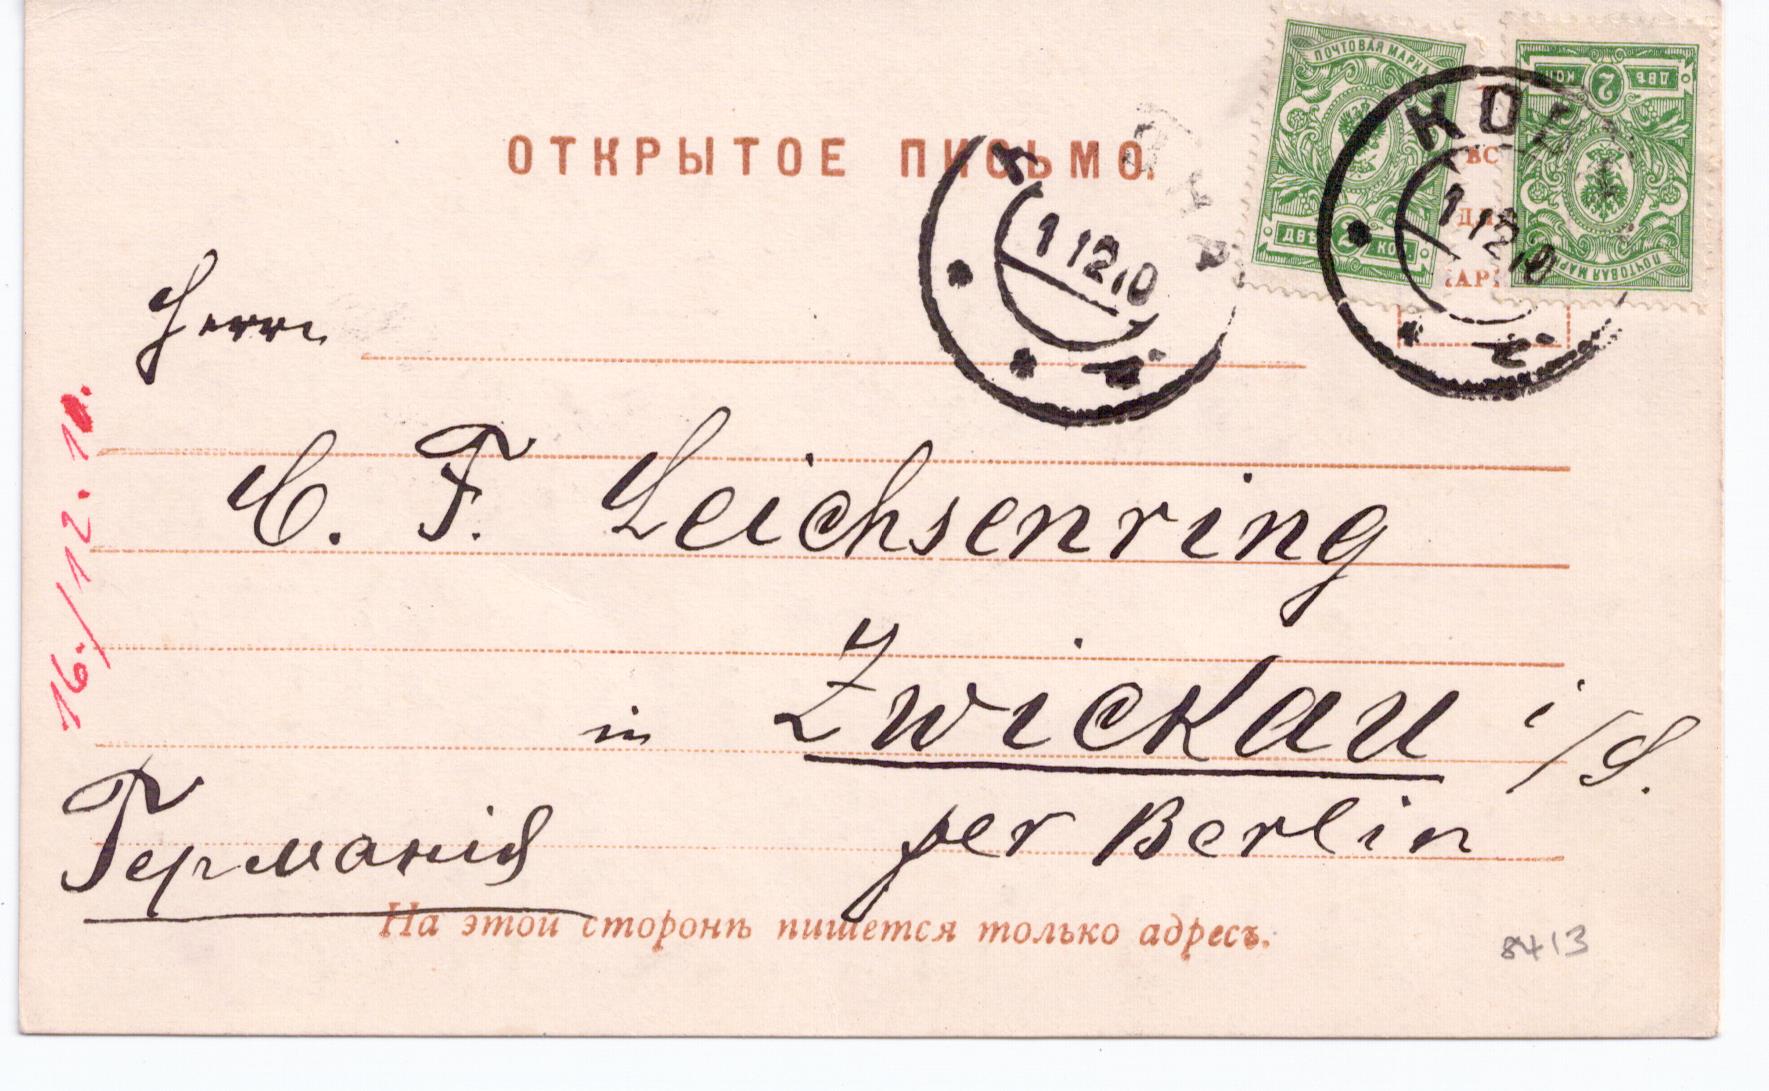 ОТКРЫТОЕ ПИСЬМО.
ПОЧТОВАЯ МАРКА
ДВѢ 2 КОП
ДВѢ 2 КОП
ПОЧТОВАЯ МАРКА
1 12 10
1 12 10
Herrn
C. F. Leichsenring
in Zwickau i/S.
per Berlin
Германія
16./12.10.
На этой сторонѣ пишется только адресъ.
8413